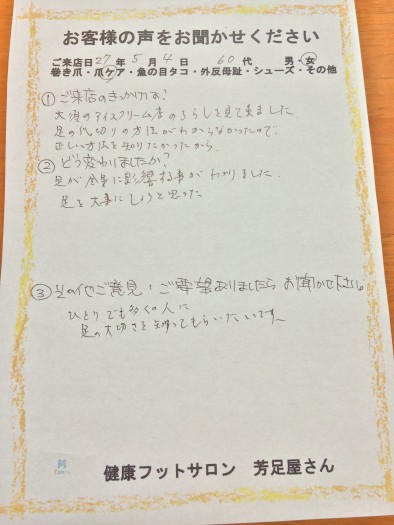 お客様の声をお聞かせください
ご来店日 27年 5月 4日 60代 男・女
巻き爪・爪ケア・魚の目タコ・外反母趾・シューズ・その他
① ご来店のきっかけは?
大須のアイスクリーム店のちらしを見て来ました
足の爪切りの方法がわからなかったので
正しい方法を知りたかったから。
② どう変わりましたか?
足が全身に影響する事がわかりました。
足を大事にしようと思った
③ その他ご意見・ご要望ありましたらお聞かせ下さい。
ひとりでも多くの人に
足の大切さを知ってもらいたいです〜
健康フットサロン 芳足屋さん